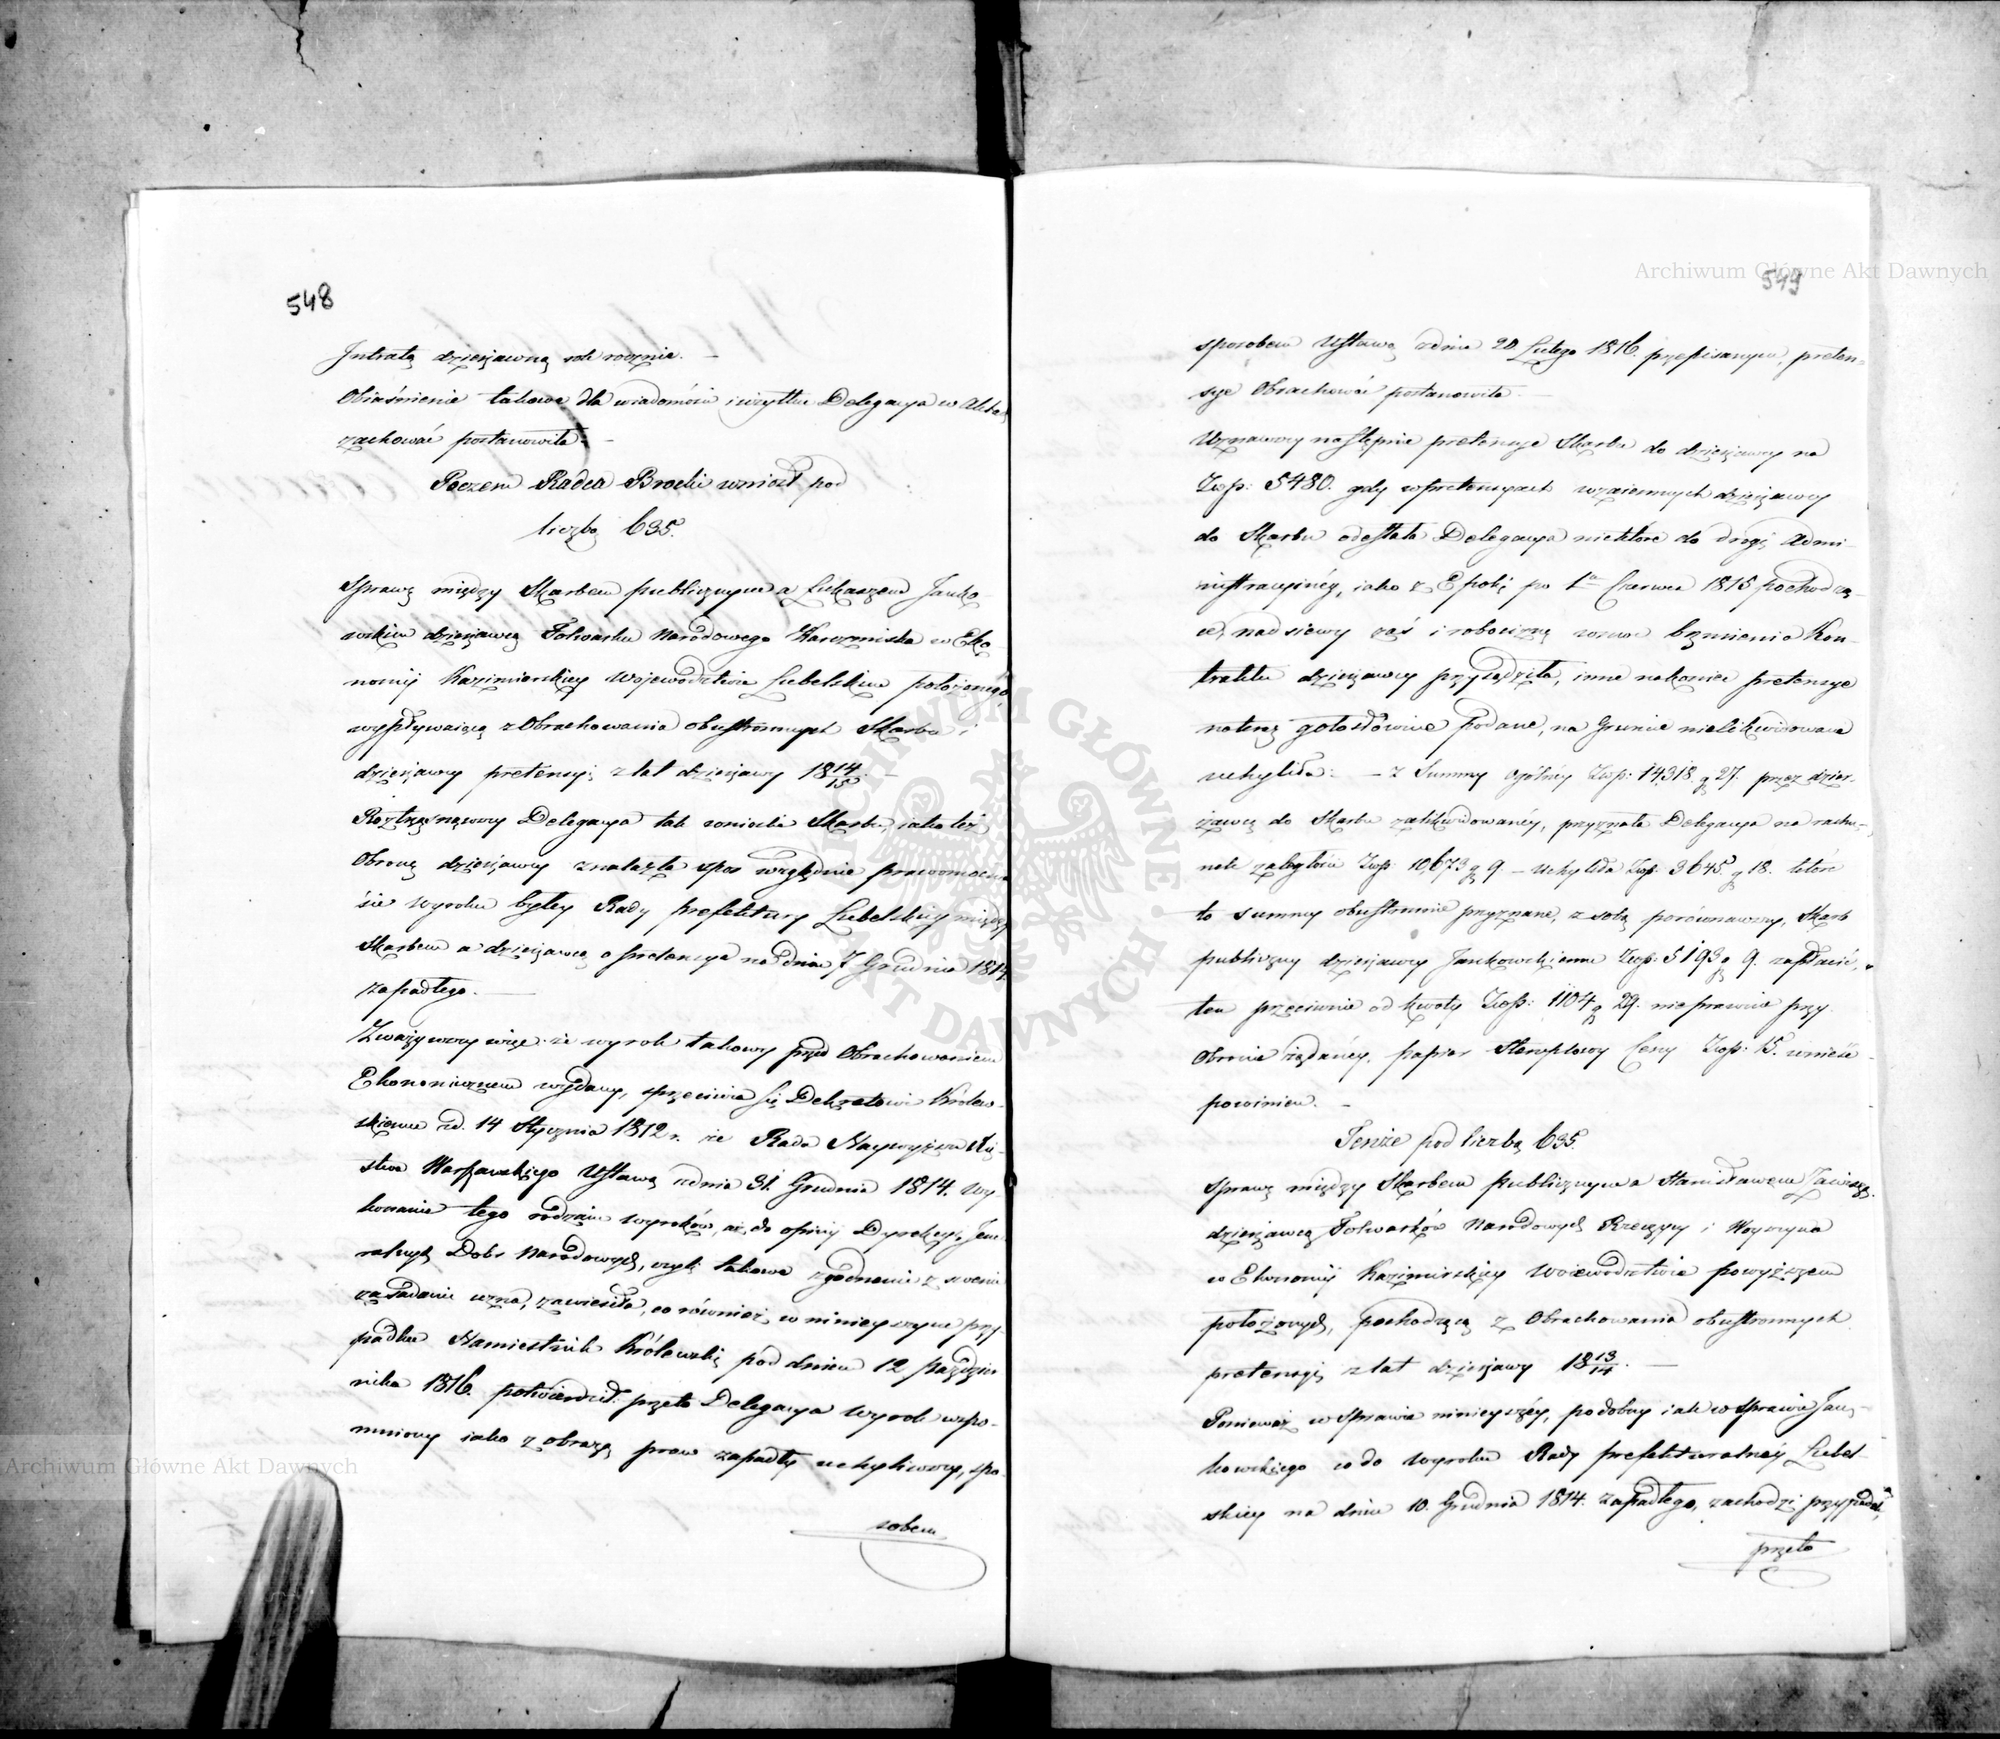 548
Intratą dzierżawną rok rocznie. —
Obiaśnienie takowe dla wiadomości i użytku Delegacya w Aktach
zachować postanowiła. —
Poczem Radca Brocki wniósł pod
liczbą 635.
Sprawę między Skarbem publicznym a Łukaszem Janko-
wskim dzierżawcą Folwarku Narodowego Karczmiska w Eko-
nomij Kazimierskiey Województwie Lubelskim położonego,
wypływaiącą z Obrachowania obustronnych Skarbu i
dzierżawcy pretensyi z lat dzierżawy 18 14/15. —
Roztrząsnąwszy Delegacya tak wnioski Skarbu, iako też
Obronę dzierżawcy znalazła spór względnie prawomocno-
ści wyroku byłey Rady prefektury Lubelskiey między
Skarbem a dzierżawcą o pretensye na dniu 7 Grudnia 1814
zapadłego. —
Zważywszy więc że wyrok takowy przed Obrachowaniem
Ekonomicznem wydany, sprzeciwia się Dekretowi Królew-
skiemu z d. 14 Stycznia 1812 r. że Rada Naywyższa Xię-
stwa Warszawskiego Ustawą z dnia 31. Grudnia 1814. wy-
konanie tego rodzaiu wyroków, aż do opinij Dyrekcyi Jene-
ralnych Dobr Narodowych, czyli takowe zgodnemi z swemi
zasadami uzna, zawiesiła, co również w ninieyszym przy-
padku Namiestnik Królewski pod dniem 12 Paździer-
nika 1816. potwierdził: przeto Delegacya wyrok wspo-
mniony iako z obrazą praw zapadły uchyliwszy, spo-
sobem
549
sposobem Ustawą z dnia 20 Lutego 1816. przepisanym, preten-
sye Obrachować postanowiła. —
Uznawszy następnie pretensye Skarbu do dzierżawcy na
Złłp: 5480. gdy w pretensyach wzaiemnych dzierżawcy
do Skarbu odesłała Delegacya niektóre do drogi Admi-
nistracyinéy, iako z Epoki po 1º Czerwca 1815 pochodzą-
ce, nad siewy zaś i robociznę wedle brzmienia Kon-
traktu dzierżawcy przysądziła, inne nakoniec pretensye
nateraz gołosłownie podane, na Gruncie nielikwidowane
uchyliła: — z Summy ogólnéy Złłp: 14318 g 27. przez dzier-
żawcę do Skarbu zalikwidowanéy, przyznała Delegacya na rachu-
nek zaległości Złłp: 10,673 g 9. — uchyliła Złp: 3645. g 18. które
to summy obustronnie przyznane, z sobą porównawszy, Skarb
publiczny dzierżawcy Jankowskiemu Złłp: 5193 g 9. zapłacić,
ten przeciwnie od kwoty Złłp: 1104 g 29. nieprawnie przy
Obronie żądanéy, papier Stemplowy Ceny Złłp: 15. wnieść
powinien. —
Tenże pod liczbą 635.
Sprawę między Skarbem Publicznym a Stanisławem Zawiszą
dzierżawcą Folwarków Narodowych Rzeczycy i Woyszyna
w Ekonomij Kazimirskiey Województwie powyższem
położonych, pochodzącą z Obrachowania obustronnych
pretensyi z lat dzierżawy 18 13/14. —
Ponieważ w Sprawie ninieyszéy, podobny iak w sprawie Jan-
kowskiego co do wyroku Rady prefekturalnéy Lubel-
skiey na dniu 10. Grudnia 1814. zapadłego, zachodzi przypadek,
przeto